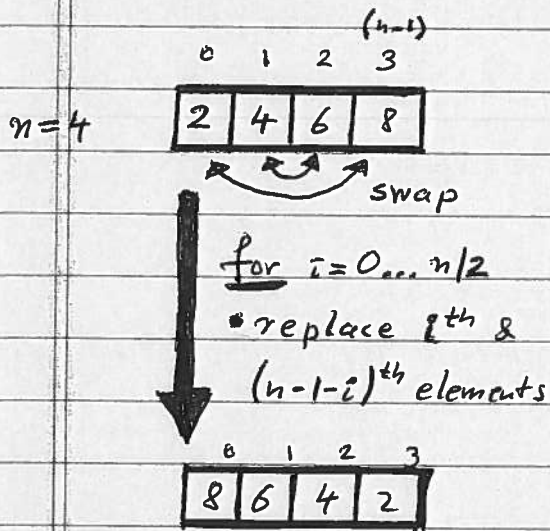 (n-1)
0 1 2 3
n=4 2 4 6 8
swap
for i=0... n/2
• replace ith &
(n-1-i)th elements
0 1 2 3
8 6 4 2